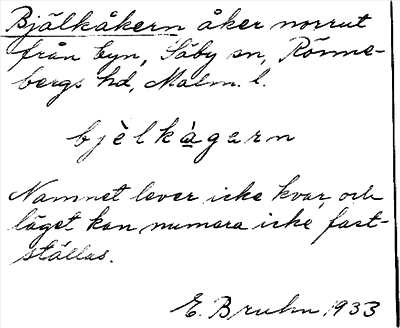 Bjälkåkern åker norrut
från byn, Säby sn, Rönne-
bergs hd, Malm. l.
bjèlkàgarn
Namnet lever icke kvar, och
läget kan numera icke fast-
ställas.
E. Bruhn 1933